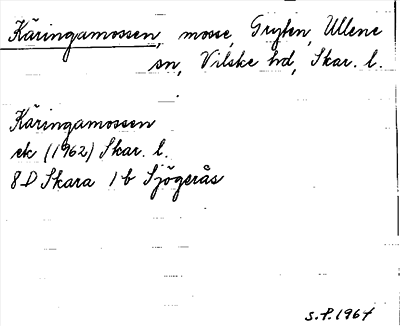 Käringamossen, mosse, Gryten, Ullene
sn, Vilske hd, Skar. l.
Käringamossen
ek (1962) Skar. l.
8 D Skara 1 b Sjögerås
S.P. 1967